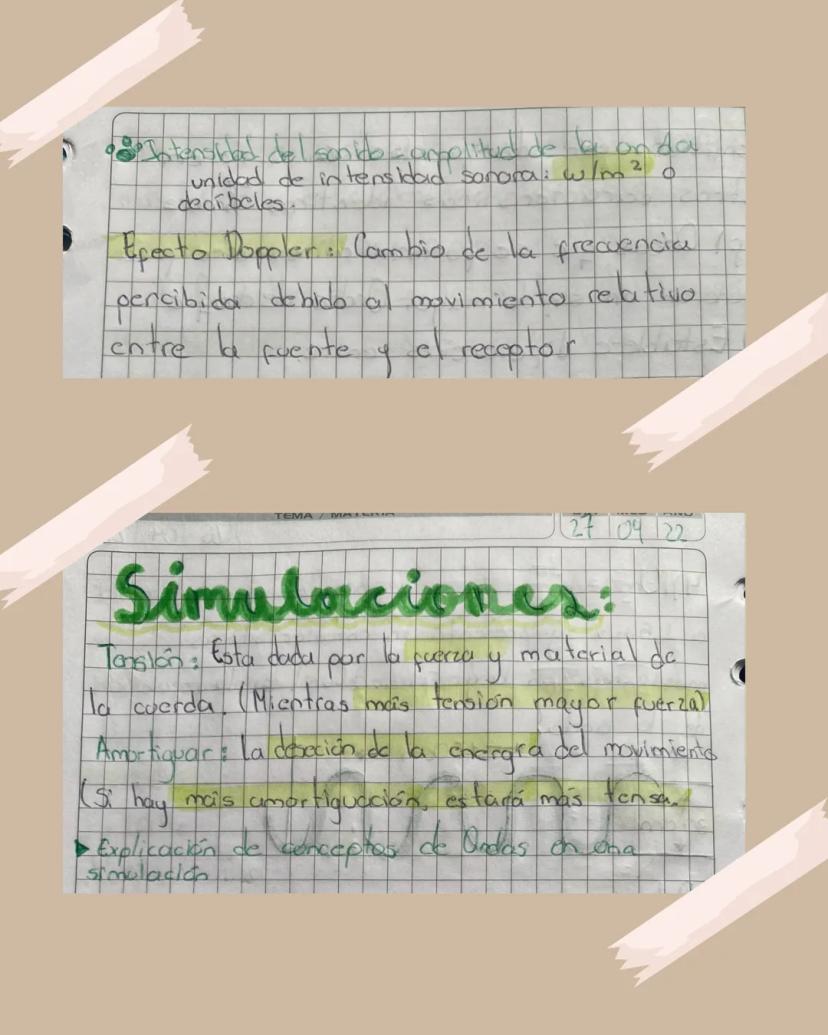 Intensidad del sonido - amplitud de la onda
unidad de intensidad sonora: w/m² o
decibeles.
Efecto Doppler: Cambio de la frecuencia
percibida debido al movimiento relativo
entre la fuente y el receptor
TEMA / MATERIA
27 04 22
Simulaciones:
Tensión: Esta dada por la fuerza y material de
la cuerda. (Mientras más tensión mayor fuerza)
Amortiguar: la de la energía del movimiento
(Si hay más amortiguación, estará más tensa.
▶ Explicación de conceptos de Ondas en una
simulación